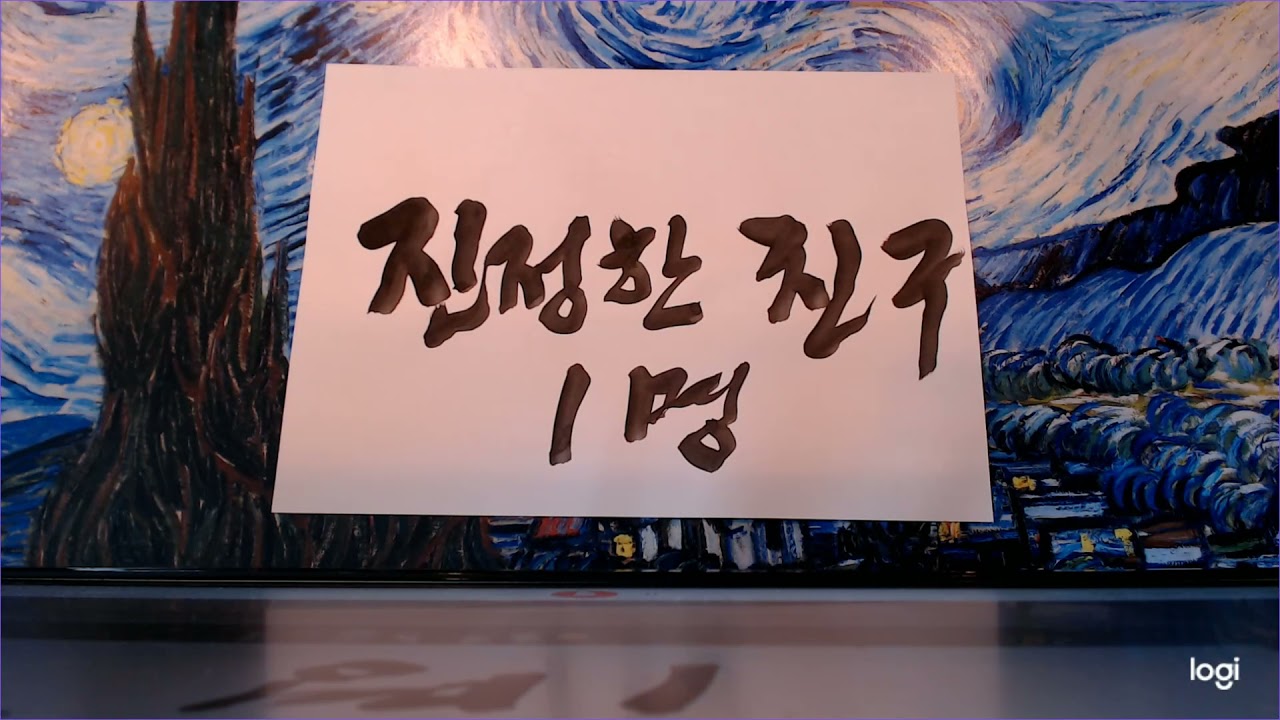 진정한 친구
1명
logi